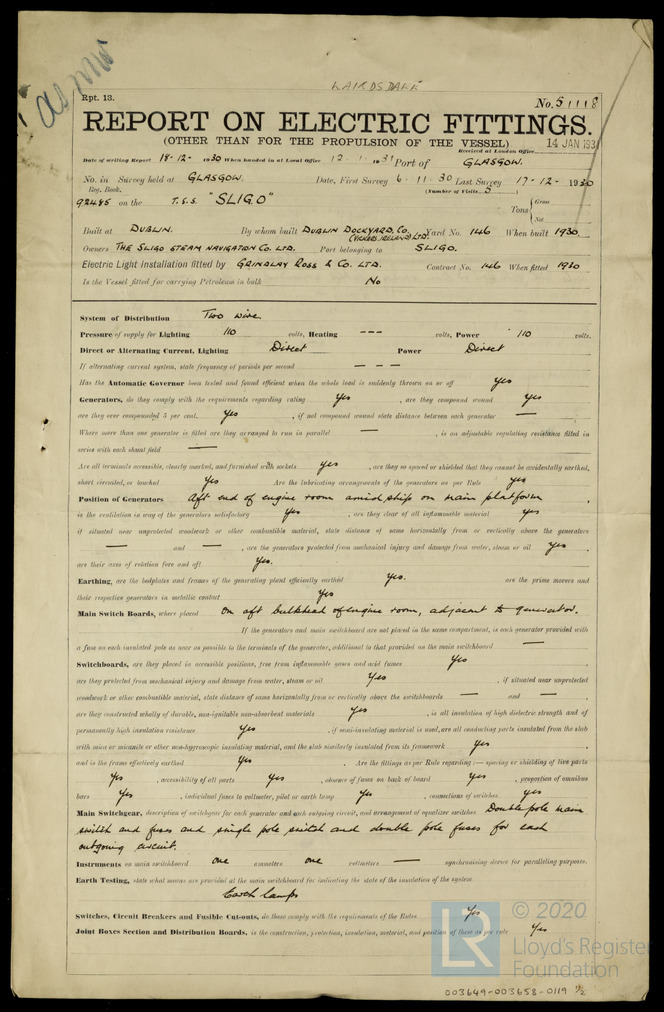 LAIRDSDALE
Rpt. 13.
No. 51118
REPORT ON ELECTRIC FITTINGS.
(OTHER THAN FOR THE PROPULSION OF THE VESSEL)
Received at London Office 14 JAN 1931
Date of writing Report 18-12- 1930 When handed in at Local Office 12-1-1931 Port of GLASGOW.
No. in Survey held at GLASGOW. Date, First Survey 6-11-30 Last Survey 17-12-1930
Reg. Book. (Number of Visits 5)
92485 on the T.S.S. "SLIGO" Tons { Gross
Net
Built at DUBLIN. By whom built DUBLIN DOCKYARD, CO. (VICKERS IRELAND) LTD. Yard No. 146 When built 1930.
Owners THE SLIGO STEAM NAVIGATION CO. LTD. Port belonging to SLIGO.
Electric Light Installation fitted by GRINDLAY ROSS & CO. LTD. Contract No. 146 When fitted 1930
Is the Vessel fitted for carrying Petroleum in bulk No
System of Distribution Two wire
Pressure of supply for Lighting 110 volts, Heating --- volts, Power 110 volts.
Direct or Alternating Current, Lighting Direct Power Direct
If alternating current system, state frequency of periods per second ---
Has the Automatic Governor been tested and found efficient when the whole load is suddenly thrown on or off Yes
Generators, do they comply with the requirements regarding rating Yes, are they compound wound Yes
are they over compounded 5 per cent. Yes, if not compound wound state distance between each generator —
Where more than one generator is fitted are they arranged to run in parallel —, is an adjustable regulating resistance fitted in
series with each shunt field —
Are all terminals accessible, clearly marked, and furnished with sockets Yes, are they so spaced or shielded that they cannot be accidentally earthed,
short circuited, or touched Yes Are the lubricating arrangements of the generators as per Rule Yes
Position of Generators Aft end of engine room amidship on main platform,
is the ventilation in way of the generators satisfactory Yes, are they clear of all inflammable material Yes
if situated near unprotected woodwork or other combustible material, state distance of same horizontally from or vertically above the generators
— and —, are the generators protected from mechanical injury and damage from water, steam or oil Yes,
are their axes of rotation fore and aft Yes.
Earthing, are the bedplates and frames of the generating plant efficiently earthed Yes. are the prime movers and
their respective generators in metallic contact Yes
Main Switch Boards, where placed On aft bulkhead of engine room, adjacent to generator.
If the generators and main switchboard are not placed in the same compartment, is each generator provided with
a fuse on each insulated pole as near as possible to the terminals of the generator, additional to that provided on the main switchboard —
Switchboards, are they placed in accessible positions, free from inflammable gases and acid fumes Yes
are they protected from mechanical injury and damage from water, steam or oil Yes, if situated near unprotected
woodwork or other combustible material, state distance of same horizontally from or vertically above the switchboards — and —,
are they constructed wholly of durable, non-ignitable non-absorbent materials Yes, is all insulation of high dielectric strength and of
permanently high insulation resistance Yes, if semi-insulating material is used, are all conducting parts insulated from the slab
with mica or micanite or other non-hygroscopic insulating material, and the slab similarly insulated from its framework Yes,
and is the frame effectively earthed Yes. Are the fittings as per Rule regarding:— spacing or shielding of live parts
Yes, accessibility of all parts Yes, absence of fuses on back of board Yes, proportion of omnibus
bars Yes, individual fuses to voltmeter, pilot or earth lamp Yes, connections of switches Yes
Main Switchgear, description of switchgear for each generator and each outgoing circuit, and arrangement of equalizer switches Double pole main
switch and fuses and single pole switch and double pole fuses for each
outgoing circuit.
Instruments on main switchboard one ammeters one voltmeters — synchronising device for paralleling purposes.
Earth Testing, state what means are provided at the main switchboard for indicating the state of the insulation of the system
Earth lamps
Switches, Circuit Breakers and Fusible Cut-outs, do these comply with the requirements of the Rules Yes
Joint Boxes Section and Distribution Boards, is the construction, protection, insulation, material, and position of these as per rule Yes
LR
© 2020
Lloyd's Register
Foundation
003649-003658-0119 1/2